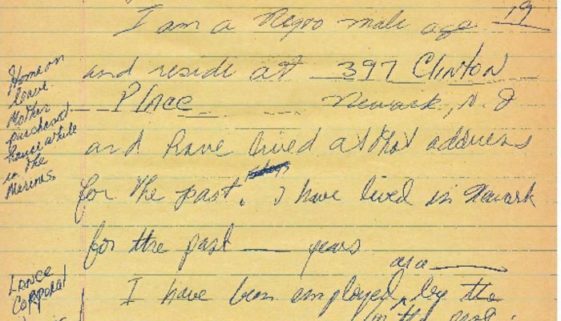 I am a Negro male age 19
and reside at 397 Clinton
Place Newark, N.J
and have lived at that address
for the past. I have lived in Newark
for the past ___ years
as a ___
I have been employed, by the
in the
Home on
leave
Mother
purchased
house while
in the
Marines.
Lance
Corporal